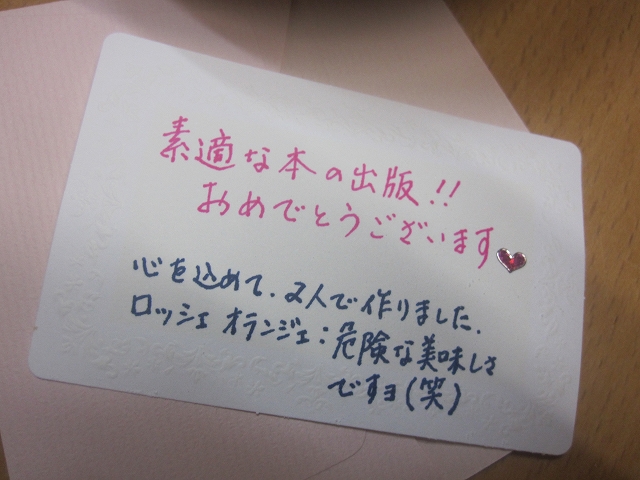 素適な本の出版!!
おめでとうございます
心を込めて、2人で作りました。
ロッシェ オランジェ:危険な美味しさ
ですョ(笑)